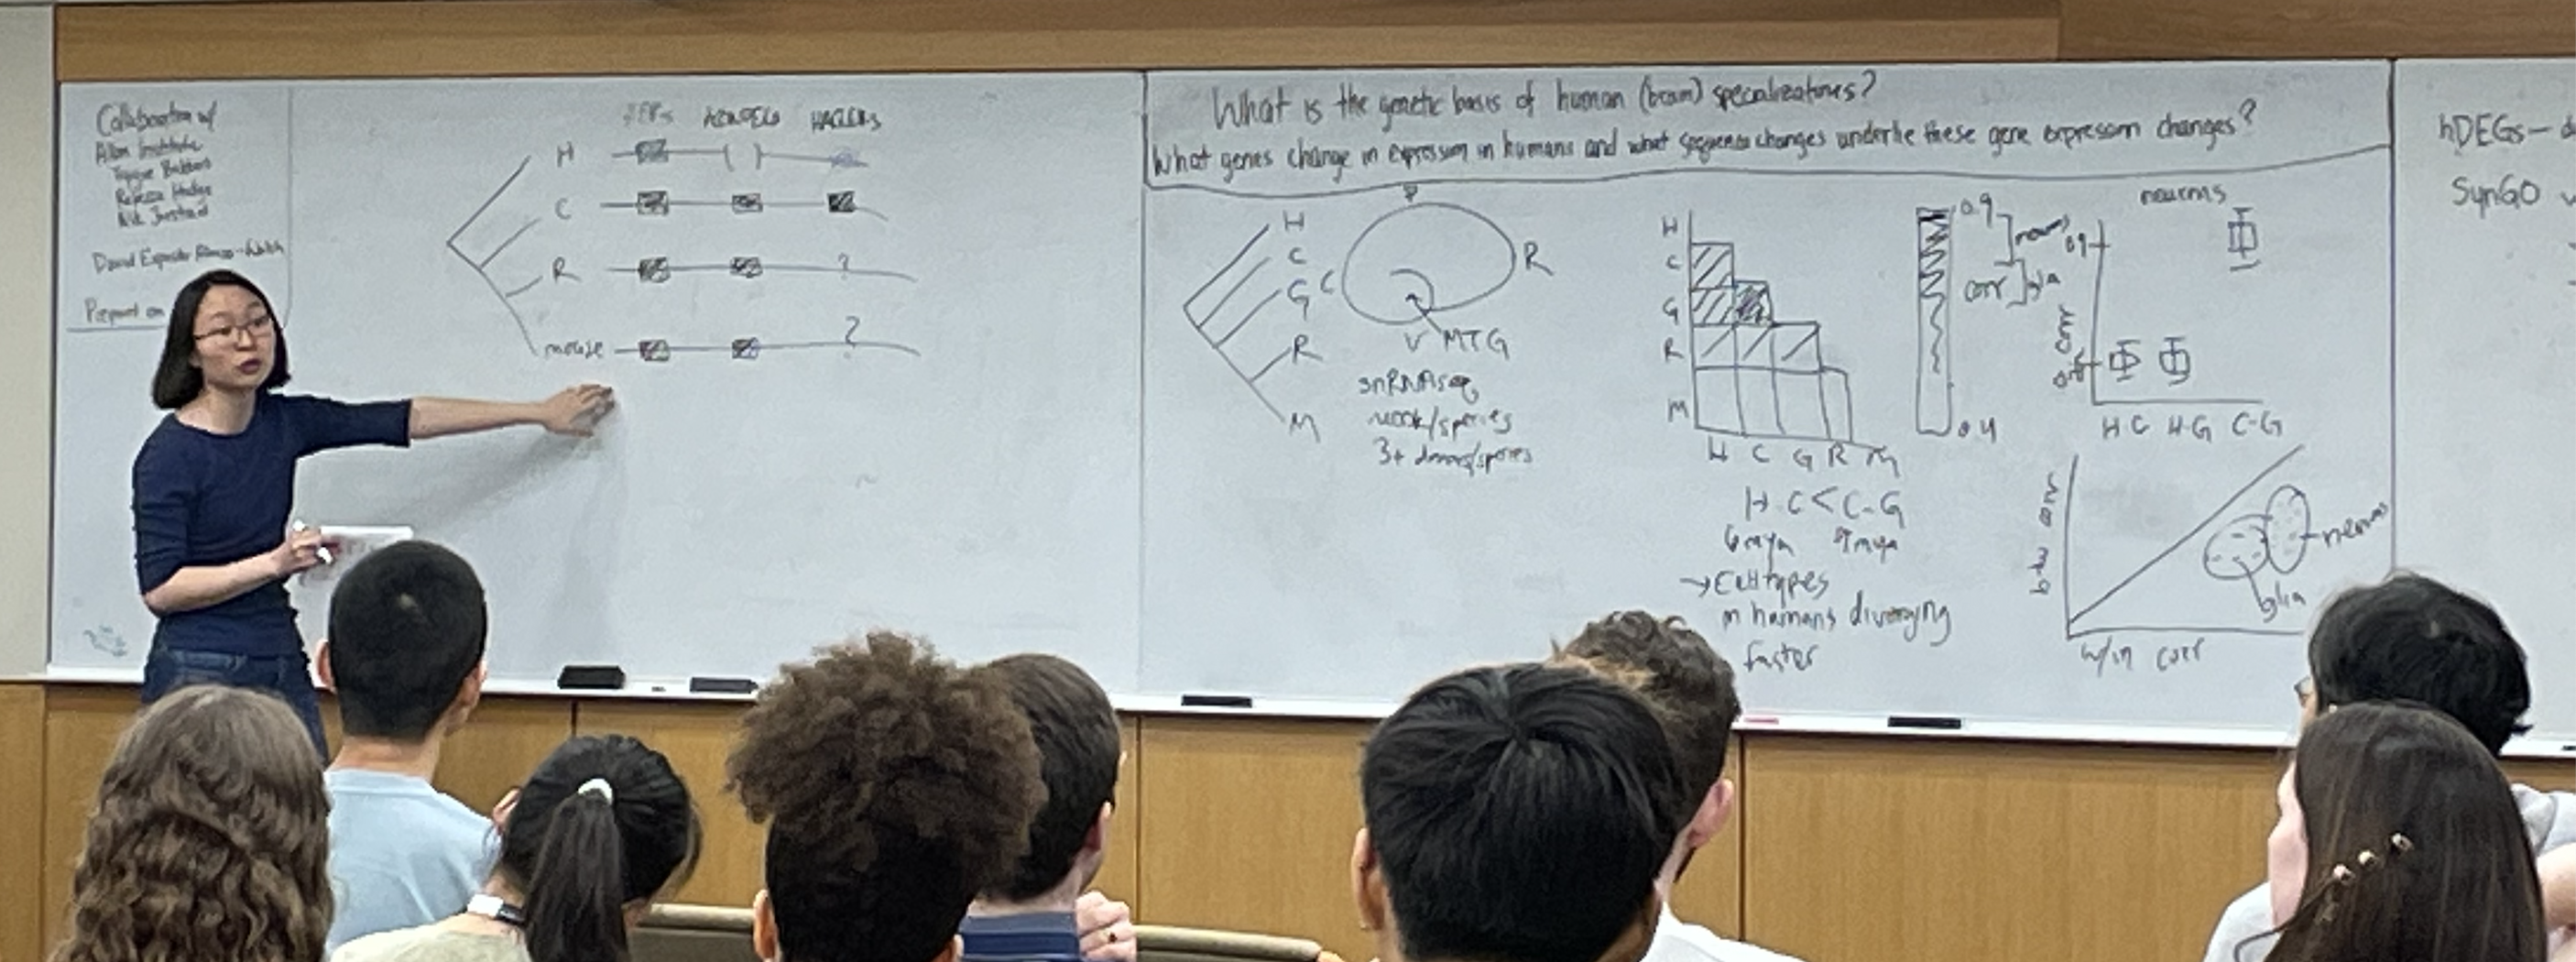 Collaboration w/
Allen Institute
Trygve Bakken
Rebecca Hodge
Nik Jorstad
David
Preprint on
HARs hCONDELs HAQERs
H
C
R ?
mouse ?
What is the genetic basis of human (brain) specializations?
What genes change in expression in humans and what sequence changes underlie these gene expression changes?
H
C
G
R
M
C
R
V
MTG
snRNAseq
/species
3+ donors/species
H
C
G
R
M
H C G R M
0.9
neurons
corr
glia
0.4
H-C < C-G
6mya 9mya
→ Cell types
in humans diverging
faster
neurons
0.9
corr
H-C H-G C-G
btw corr
neurons
glia
w/in corr
hDEGs –
SynGO